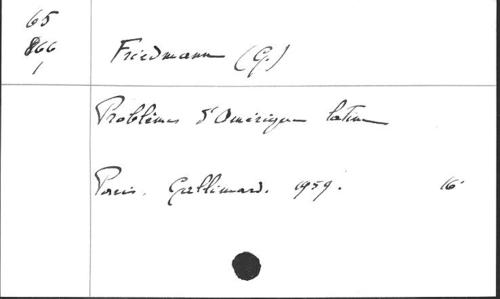 65
866
1
Friedmann (G.)
Problèmes d'Amérique latine
Paris. Gallimard. 1959. 16°